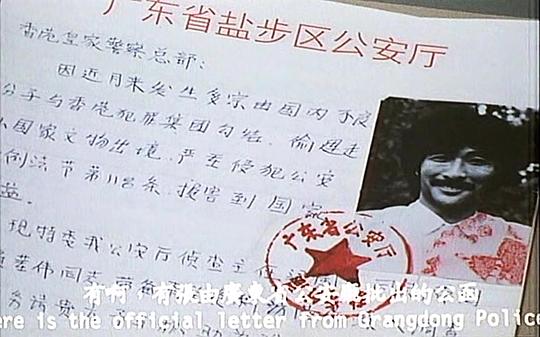 广东省盐步区公安厅
香港皇家警察总部:
因近月来发生多宗由国内不良
分子与香港犯罪集团勾结,偷运走
国家文物出境,严重侵犯公安
例法节第118条,损害到国家
益。
现特委我公安厅侦查主任
伟同志带备
务请贵
广东省公安厅
有啊,有張由廣東省公安廳批出的公函
ere is the official letter from Grangdong Police